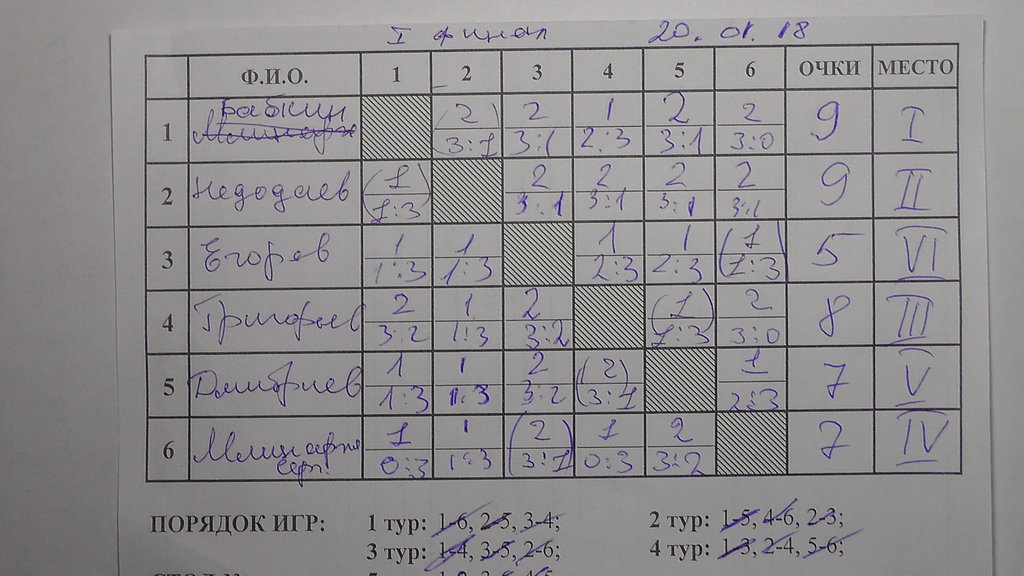 I финал 20.01.18
Ф.И.О. 1 2 3 4 5 6 ОЧКИ МЕСТО
1 Бабкин (2) 2 1 2 2 9 I
3:1 3:1 2:3 3:1 3:0
2 Недодаев (1) 2 2 2 2 9 II
1:3 3:1 3:1 3:1 3:1
3 Егорев 1 1 1 1 (1) 5 VI
1:3 1:3 2:3 2:3 (1:3)
4 Григорьев 2 1 2 (1) 2 8 III
3:2 1:3 3:2 1:3 3:0
5 Дмитриев 1 1 2 (2) 1 7 V
1:3 1:3 3:2 (3:1) 2:3
6 1 1 (2) 1 2 7 IV
Серг. 0:3 1:3 (3:1) 0:3 3:2
ПОРЯДОК ИГР: 1 тур: 1-6, 2-5, 3-4; 2 тур: 1-5, 4-6, 2-3;
3 тур: 1-4, 3-5, 2-6; 4 тур: 1-3, 2-4, 5-6;